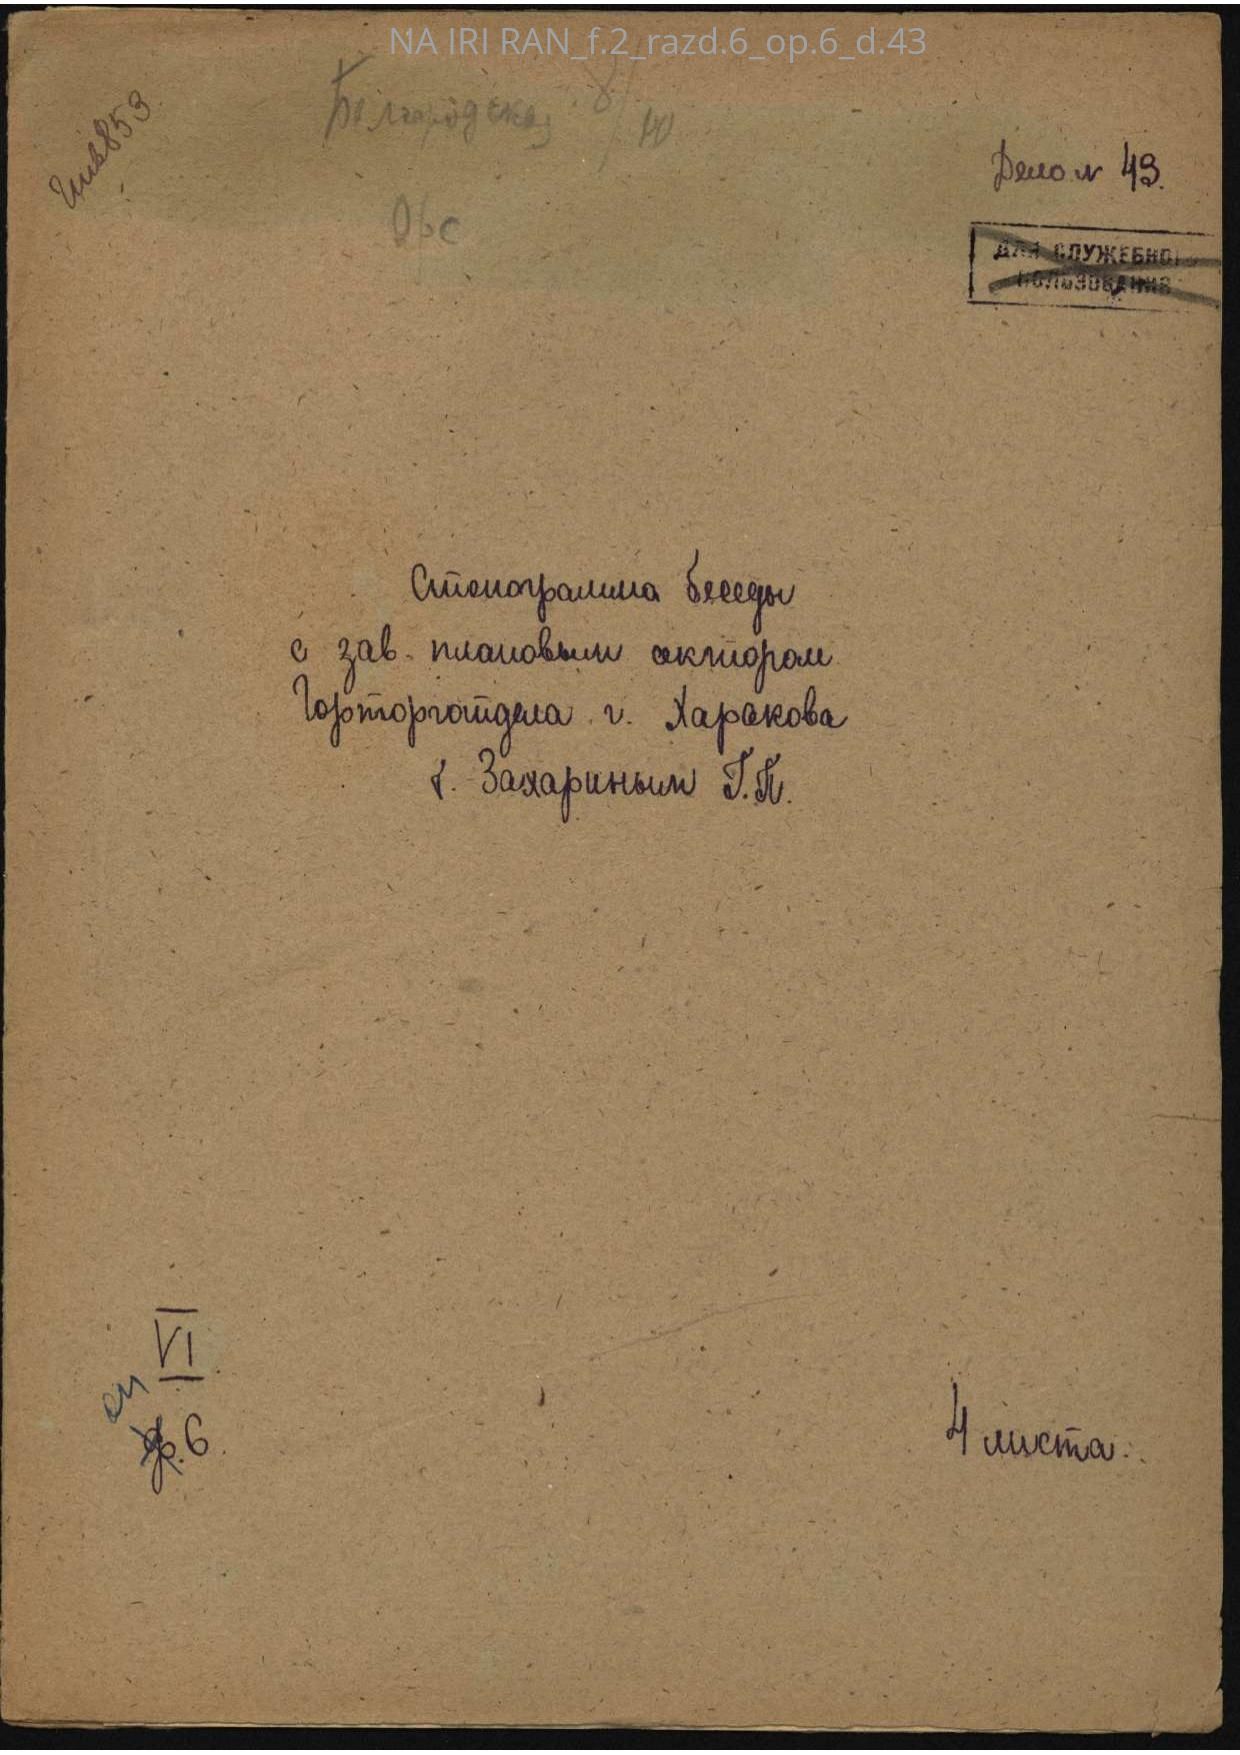 NA IRI RAN_f.2_razd.6_op.6_d.43
Инв853
Дело № 43.
ДЛЯ СЛУЖЕБНОГО
ПОЛЬЗОВАНИЯ
Стенограмма беседы
с зав. плановым сектором
Горторготдела г. Харькова
т. Захариным Г.П.
VI
оп
6
4 листа.